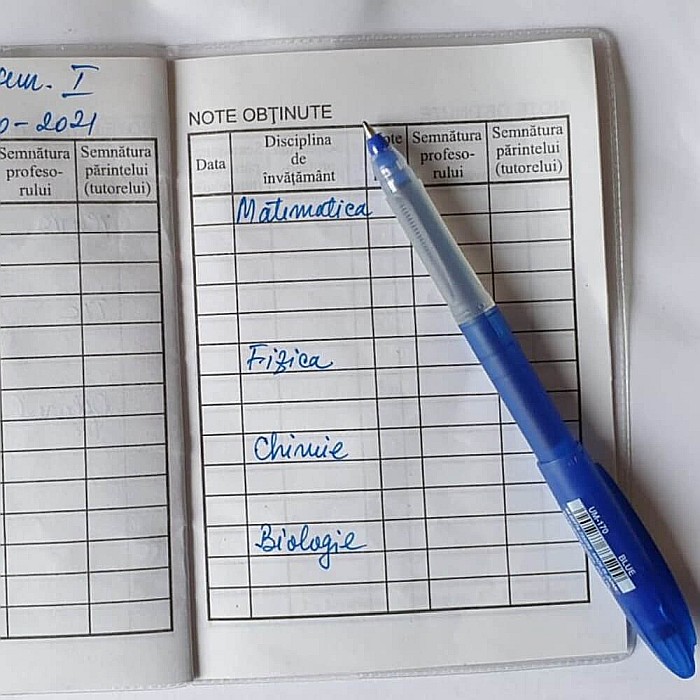 sem. I
0-2021
Semnătura
profeso-
rului
Semnătura
părintelui
(tutorelui)
NOTE OBŢINUTE
Data
Disciplina
de
învăţământ
Semnătura
profeso-
rului
Semnătura
părintelui
(tutorelui)
Matematica
Fizica
Chimie
Biologie
UM-170
BLUE